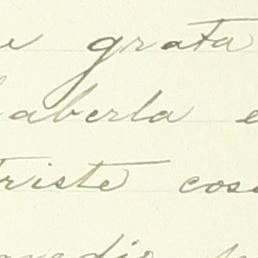 e grata
haberla e
triste cosa